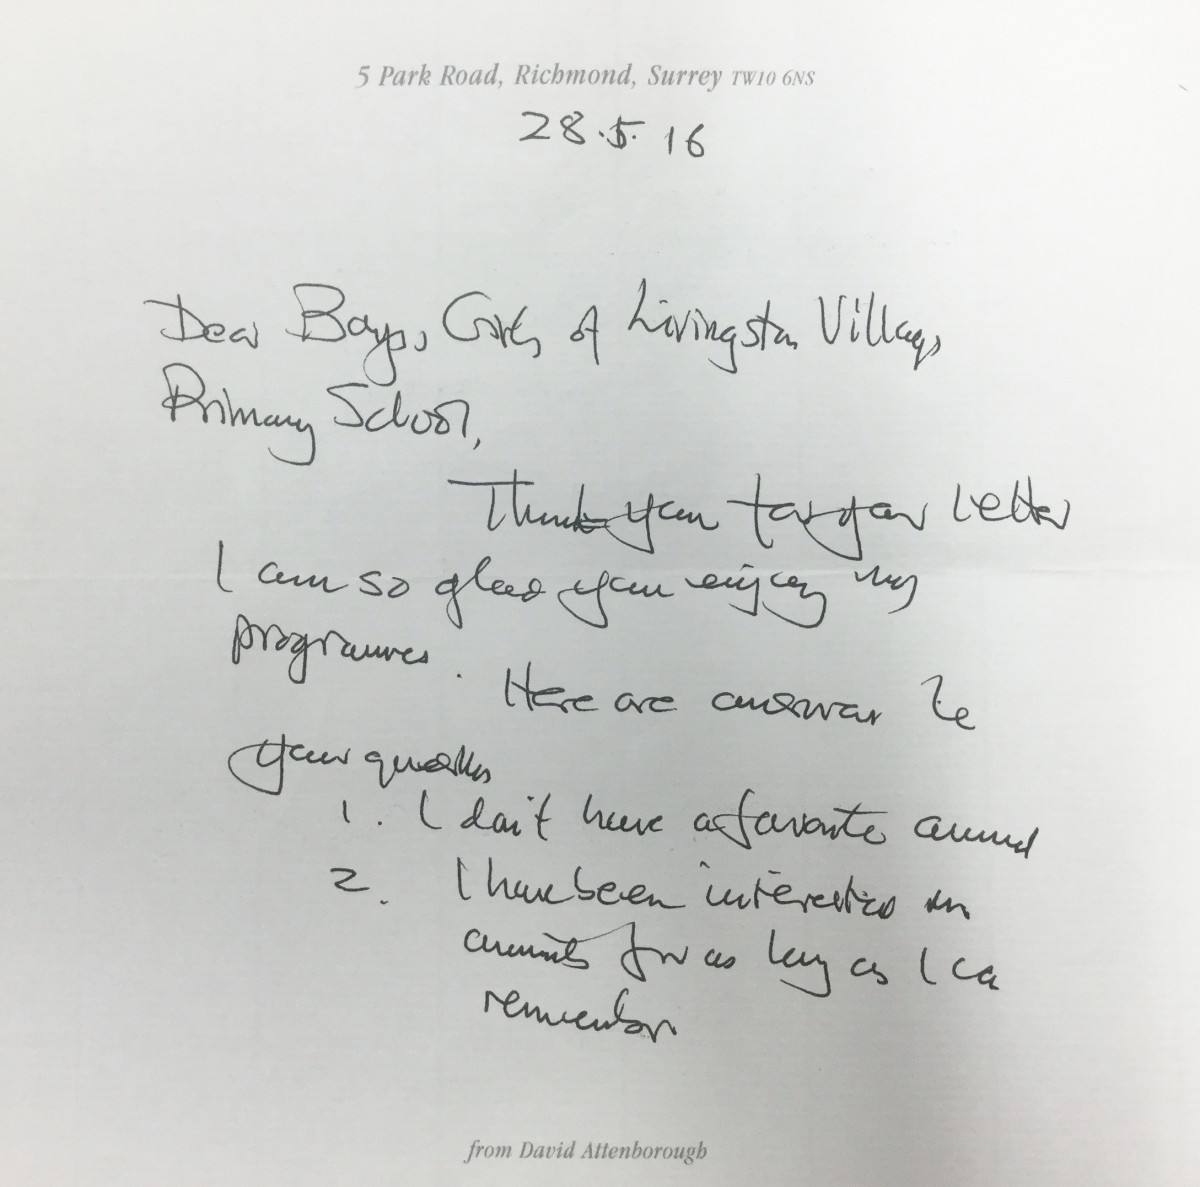 5 Park Road, Richmond, Surrey TW10 6NS
28.5.16
Dear Boys, Girls of Livingston Village
Primary School,
Thank you for your letter
I am so glad you enjoy my
programmes. Here are answer to
your questions
1. I don't have a favourite animal
2. I have been interested in
animals for as long as I can
remember
from David Attenborough